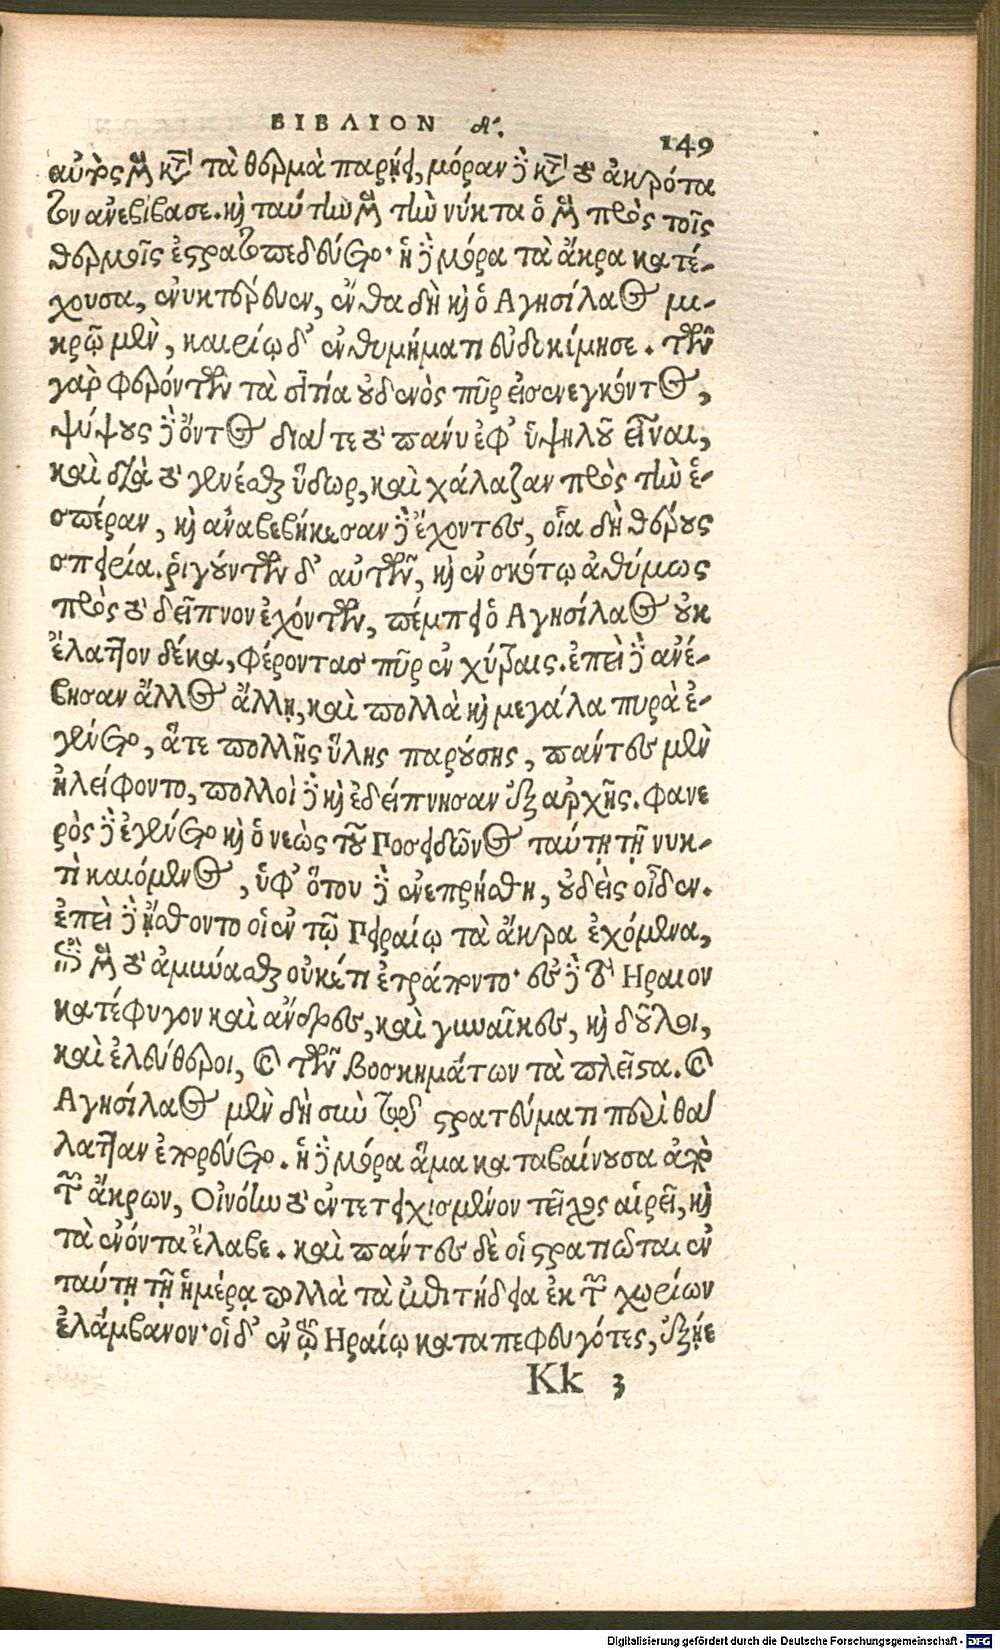 ΒΙΒΛΙΟΝ δ'. 149
αὐτὸς μὲν κατὰ τὰ θερμὰ παρῄει, μόραν δὲ κατὰ τὸ ἀκρότα
τον ἀνεβίβασε. καὶ ταύτην μὲν τὴν νύκτα ὁ μὲν πρὸς τοῖς
θερμοῖς ἐστρατοπεδεύετο· ἡ δὲ μόρα τὰ ἄκρα κατέ-
χουσα, ἐνυκτέρευεν, ἔνθα δὴ καὶ ὁ Αγησίλαος μι-
κρῷ μὲν, καιρίῳ δ' ἐνθυμήματι εὐδοκίμησε. τῶν
γὰρ φερόντων τὰ σιτία οὐδενὸς πῦρ εἰσενεγκόντος,
ψύχους δὲ ὄντος διά τε τὸ πάνυ ἐφ' ὑψηλοῦ εἶναι,
καὶ διὰ τὸ γενέσθαι ὕδωρ, καὶ χάλαζαν πρὸς τὴν ἑ-
σπέραν, καὶ ἀναβεβήκεσαν δὲ ἔχοντες, οἷα δὴ θέρους
σπειρία. ῥιγούντων δ' αὐτῶν, καὶ ἐν σκότῳ ἀθύμως
πρὸς τὸ δεῖπνον ἐχόντων, πέμπει ὁ Αγησίλαος οὐκ
ἔλαττον δέκα, φέροντας πῦρ ἐν χύτραις. ἐπεὶ δὲ ἀνέ-
βησαν ἄλλος ἄλλῃ, καὶ πολλὰ καὶ μεγάλα πυρὰ ἐ-
γένετο, ἅτε πολλῆς ὕλης παρούσης, πάντες μὲν
ἠλείφοντο, πολλοὶ δὲ καὶ ἐδείπνησαν ἐξ ἀρχῆς. φανε
ρὸς δὲ ἐγένετο καὶ ὁ νεὼς τοῦ Ποσειδῶνος ταύτῃ τῇ νυκ-
τὶ καιόμενος, ὑφ' ὅτου δὲ ἐνεπρήσθη, οὐδεὶς οἶδεν.
ἐπεὶ δὲ ᾔσθοντο οἱ ἐν τῷ Πειραίῳ τὰ ἄκρα ἐχόμενα,
ἐπὶ μὲν τὸ ἀμύνασθαι οὐκέτι ἐτράποντο· εἰς δὲ τὸ Ηραιον
κατέφυγον καὶ ἄνδρες, καὶ γυναῖκες, καὶ δοῦλοι,
καὶ ἐλεύθεροι, καὶ τῶν βοσκημάτων τὰ πλεῖστα. καὶ
Αγησίλαος μὲν δὴ σὺν τῷ στρατεύματι περὶ θά
λατταν ἐπορεύετο. ἡ δὲ μόρα ἅμα καταβαίνουσα ἀπὸ
τῶν ἄκρων, Οἰνόην τὸ ἐντετειχισμένον τεῖχος αἱρεῖ, καὶ
τὰ ἐνόντα ἔλαβε. καὶ πάντες δὲ οἱ στρατιῶται ἐν
ταύτῃ τῇ ἡμέρᾳ πολλὰ τὰ ἐπιτήδεια ἐκ τῶν χωρίων
ἐλάμβανον· οἱ δ' ἐν τῷ Ηραίῳ καταπεφευγότες, ἐξῄε
Kk 3
Digitalisierung gefördert durch die Deutsche Forschungsgemeinschaft - DFG